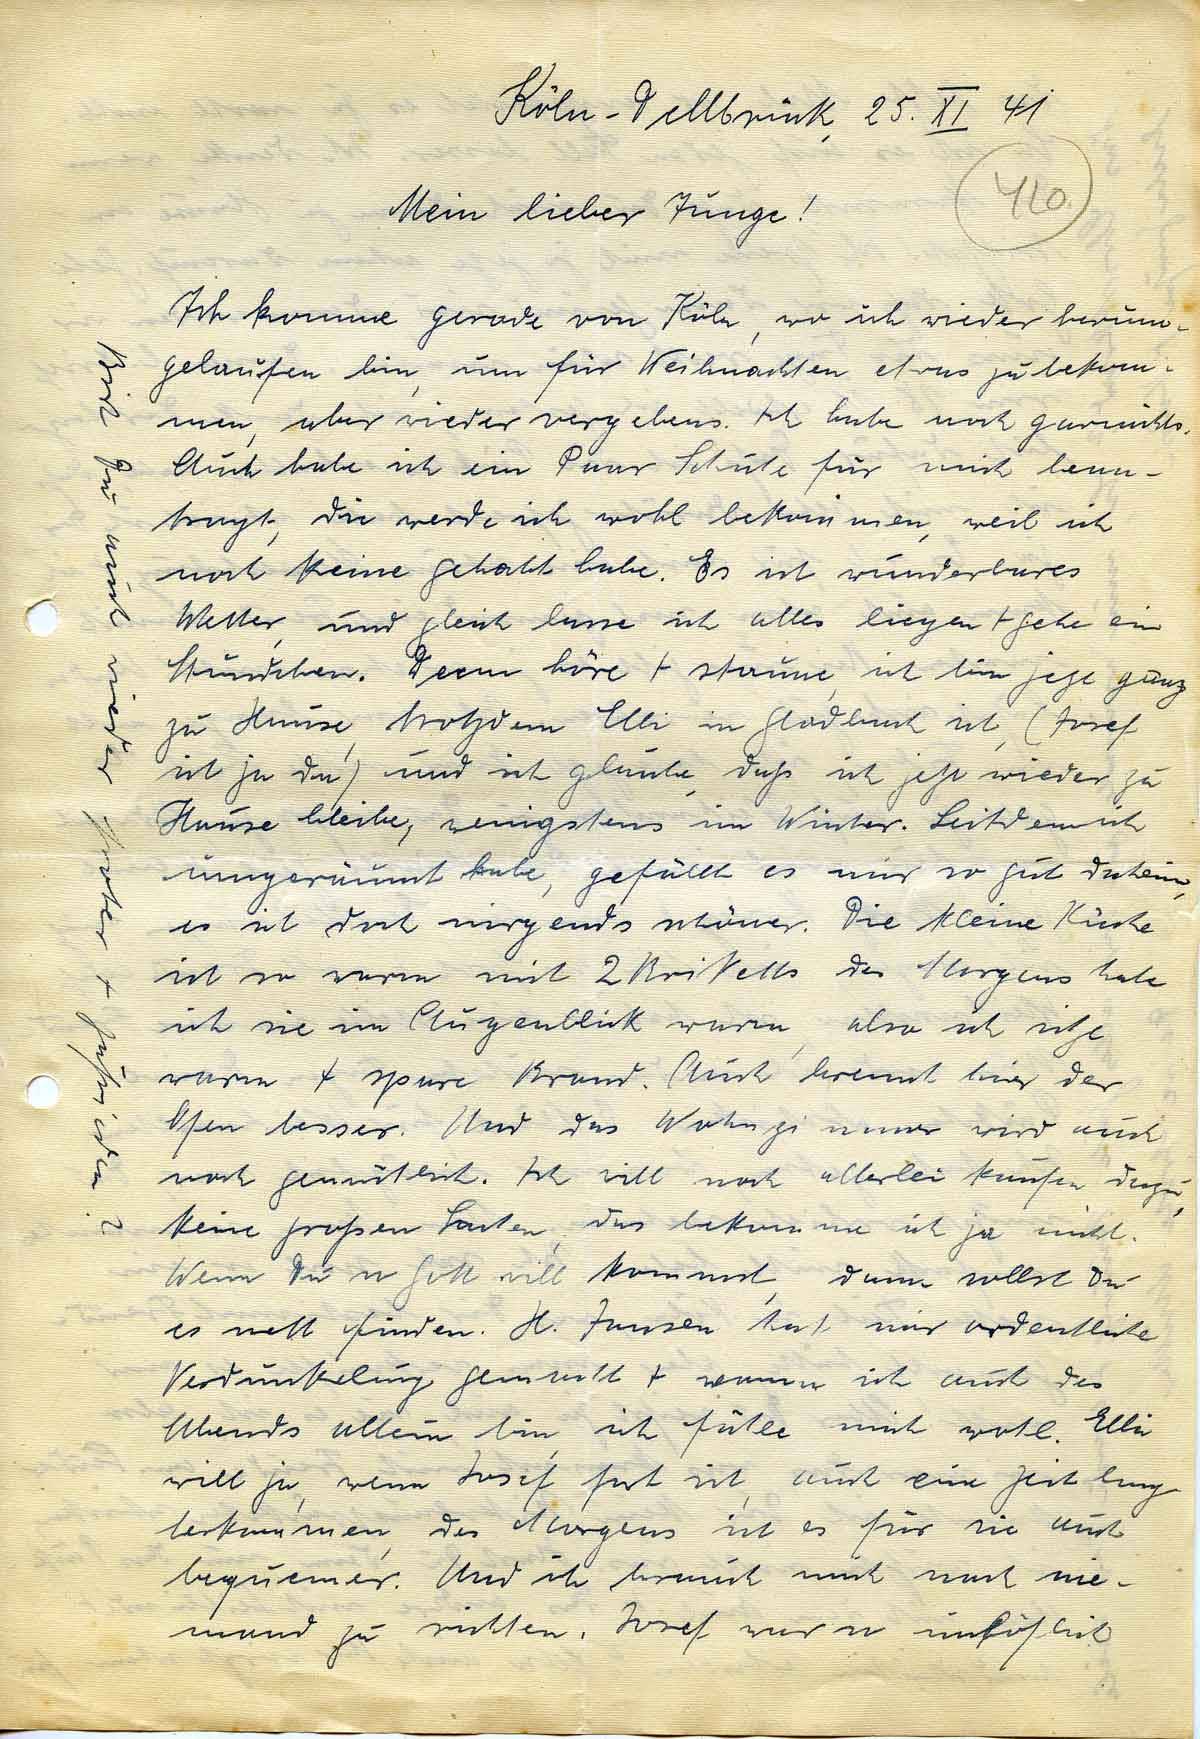 Köln-Dellbrück, 25. XI 41
410.
Mein lieber Junge!
Ich komme gerade von Köln, wo ich wieder herum-
gelaufen bin, um für Weihnachten etwas zu bekom-
men, aber wieder vergebens. Ich habe noch garnichts.
Auch habe ich ein Paar Schuhe für mich bean-
tragt, die werde ich wohl bekommen, weil ich
noch keine gehabt habe. Es ist wunderbares
Wetter, und gleich lasse ich alles liegen + gehe ein
Stündchen. Denn höre + staune, ich bin jetzt ganz
zu Hause, trotzdem Elli in Gladbach ist, (Josef
ist ja da) und ich glaube, daß ich jetzt wieder zu
Hause bleibe, wenigstens im Winter. Seitdem ich
umgeräumt habe, gefällt es mir so gut daheim,
es ist doch nirgends schöner. Die kleine Küche
ist so warm mit 2 Briketts des Morgens habe
ich sie im Augenblick warm, also ich sitze
warm + spare Brand. Auch brennt hier der
Ofen besser. Und das Wohnzimmer wird auch
noch gemütlich. Ich will noch allerlei kaufen dazu,
keine großen Sachen, das bekomme ich ja nicht.
Wenn Du so Gott will kommst, dann sollst Du
es nett finden. H. Jansen hat mir ordentliche
Verdunkelung gemacht + wenn ich auch des
Abends allein bin, ich fühle mich wohl. Elli
will ja, wenn Josef fort ist, auch eine Zeit lang
herkommen, des Morgens ist es für sie auch
bequemer. Und ich brauch mich nach nie-
mand zu richten. Josef war so unhöflich
Bist Du nicht wieder + zufrieden?